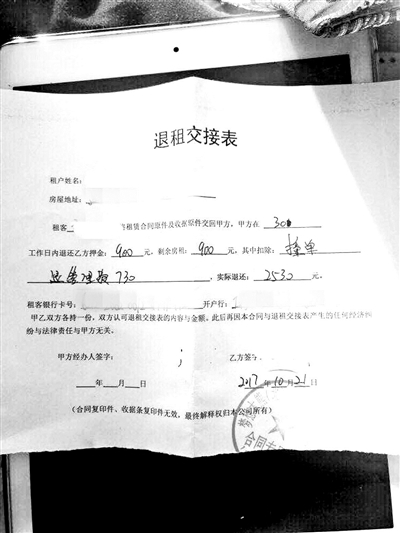 退租交接表
租户姓名:
房屋地址:
租客 租赁合同原件及收据原件交回甲方,甲方在 30
工作日内退还乙方押金: 900 元,剩余房租: 900 元,其中扣除:
管理费 730 ,实际退还: 2530 元。
租客银行卡号: 开户行:
甲乙双方各持一份,双方认可退租交接表的内容与金额。此后再因本合同与退租交接表产生的任何经济纠
纷与法律责任与甲方无关。
甲方经办人签字: 乙方签字:
年 月 日 2017 年 10 月 21 日
(合同复印件、收据条复印件无效,最终解释权归本公司所有)